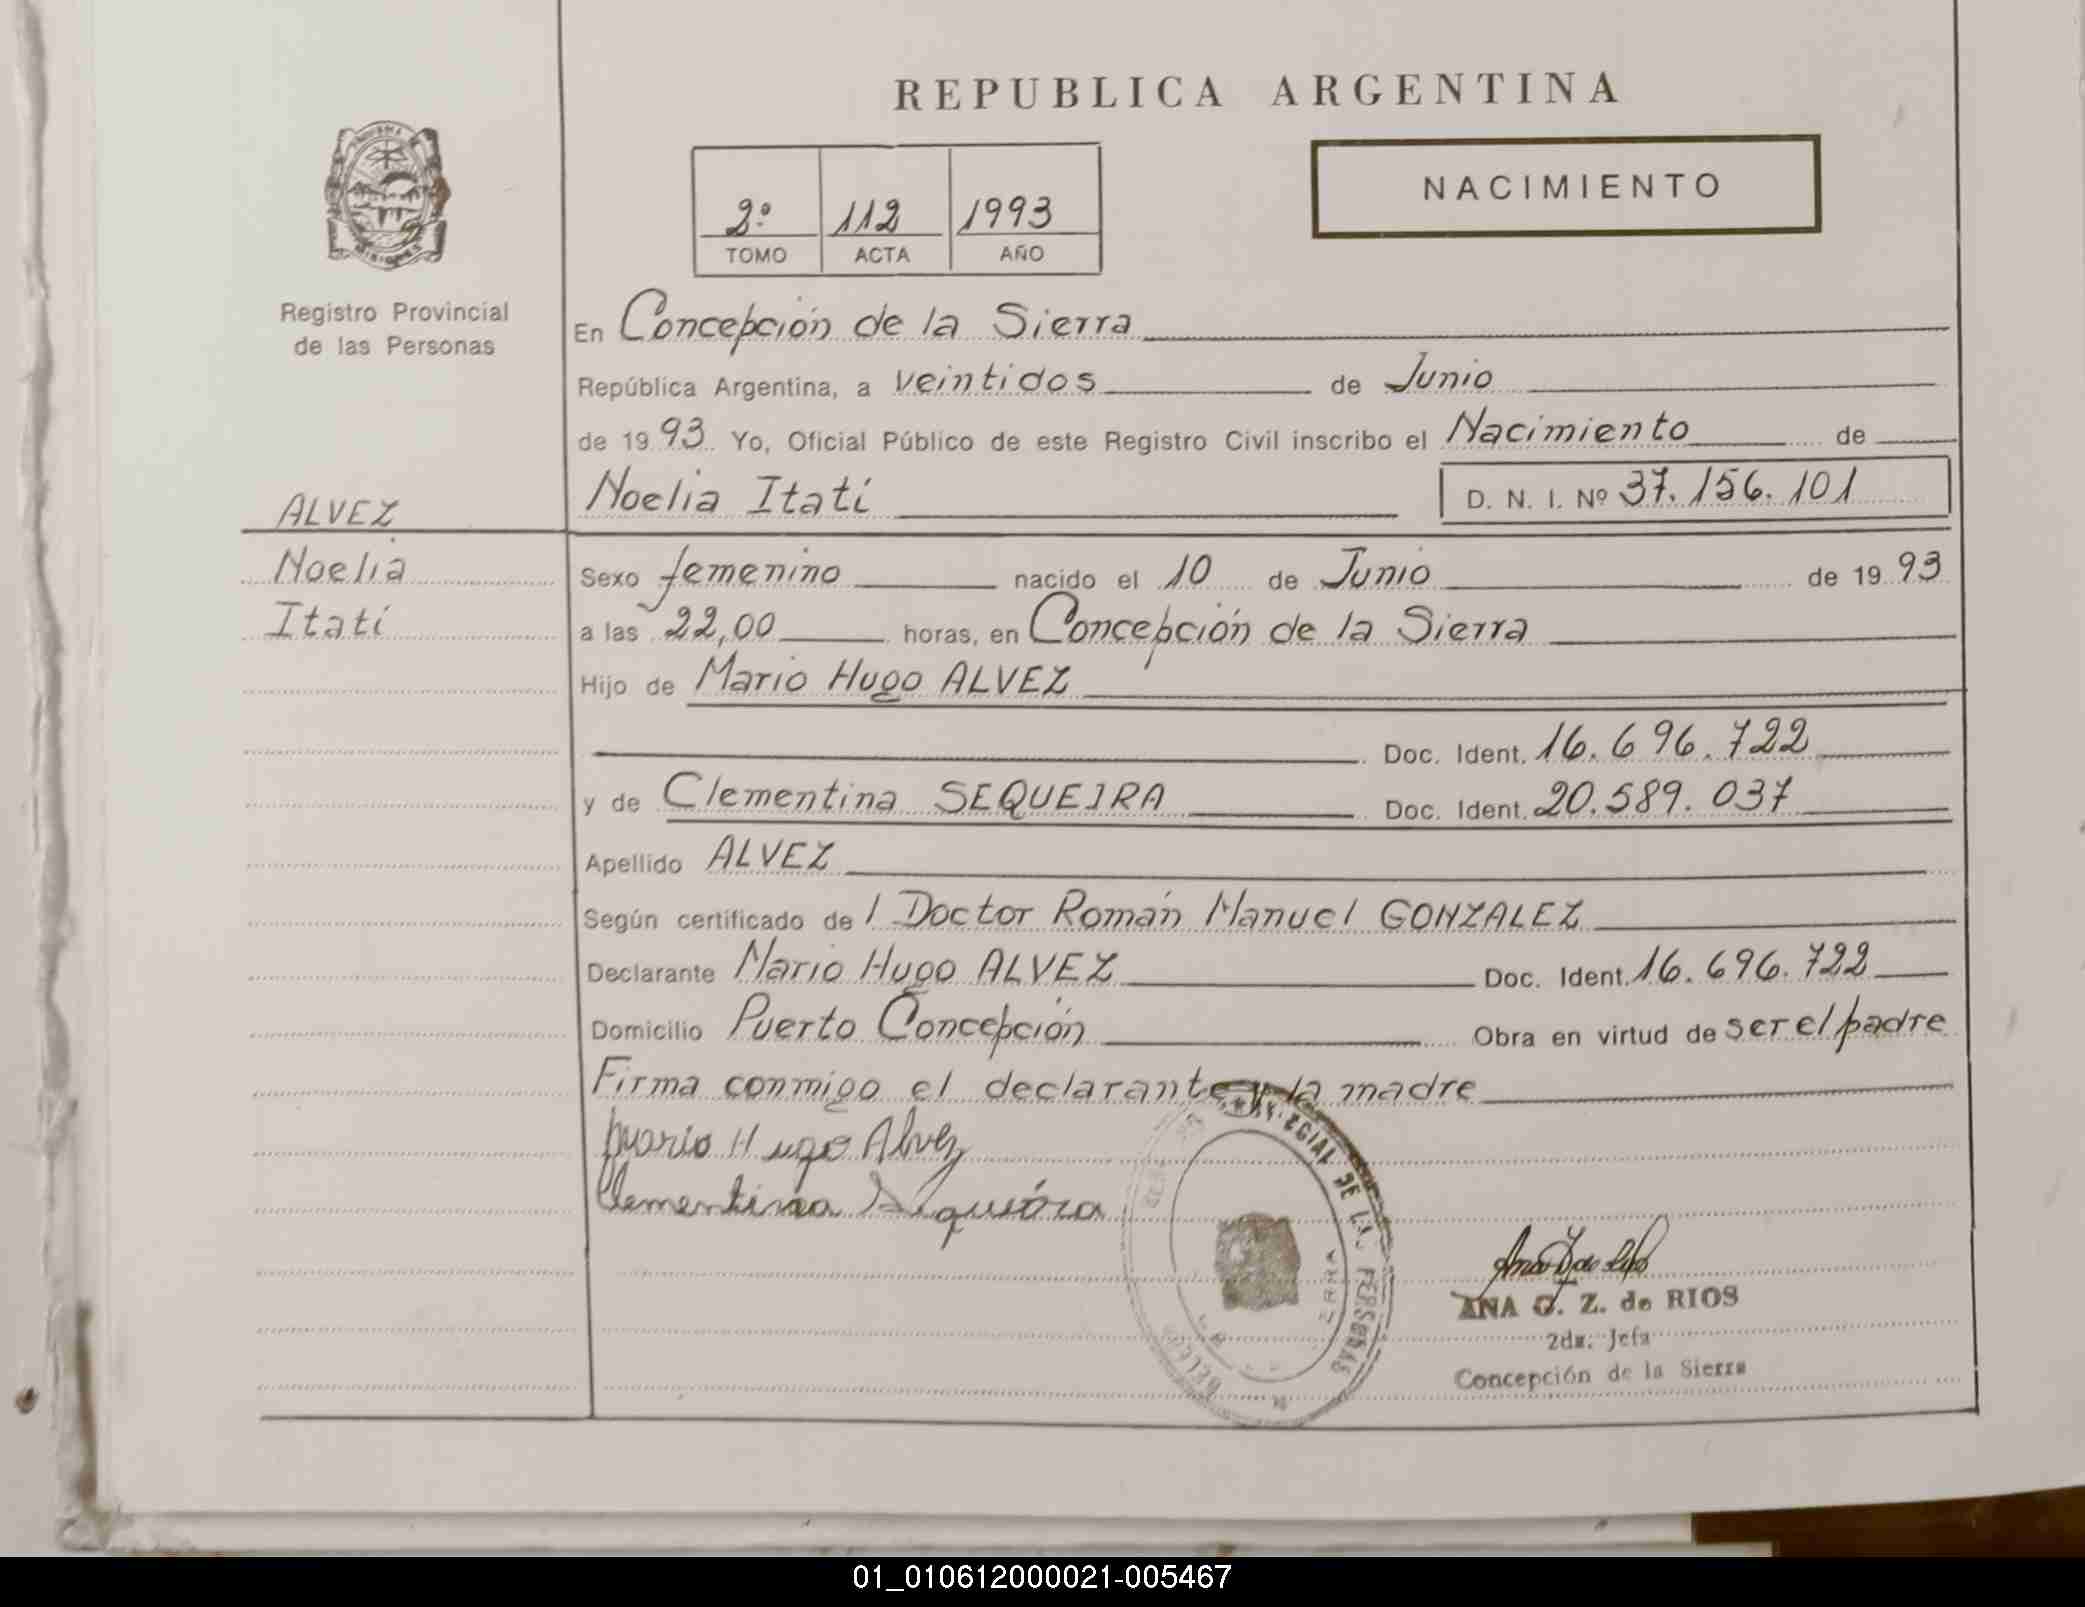 REPUBLICA ARGENTINA
NACIMIENTO
2º 112 1993
TOMO ACTA AÑO
Registro Provincial
de las Personas
En Concepción de la Sierra
República Argentina, a veintidos de Junio
de 1993 Yo, Oficial Público de este Registro Civil inscribo el Nacimiento de
Noelia Itatí D. N. I. Nº 37.156.101
ALVEZ
Noelia
Itatí
Sexo femenino nacido el 10 de Junio de 1993
a las 22,00 horas, en Concepción de la Sierra
Hijo de Mario Hugo ALVEZ
Doc. Ident. 16.696.722
y de Clementina SEQUEIRA Doc. Ident. 20.589.037
Apellido ALVEZ
Según certificado del Doctor Román Manuel GONZALEZ
Declarante Mario Hugo ALVEZ Doc. Ident. 16.696.722
Domicilio Puerto Concepción Obra en virtud de ser el padre
Firma conmigo el declarante y la madre
Mario Hugo Alvez
Clementina
ANA G. Z. de RIOS
2da. Jefa
Concepción de la Sierra
01_010612000021-005467